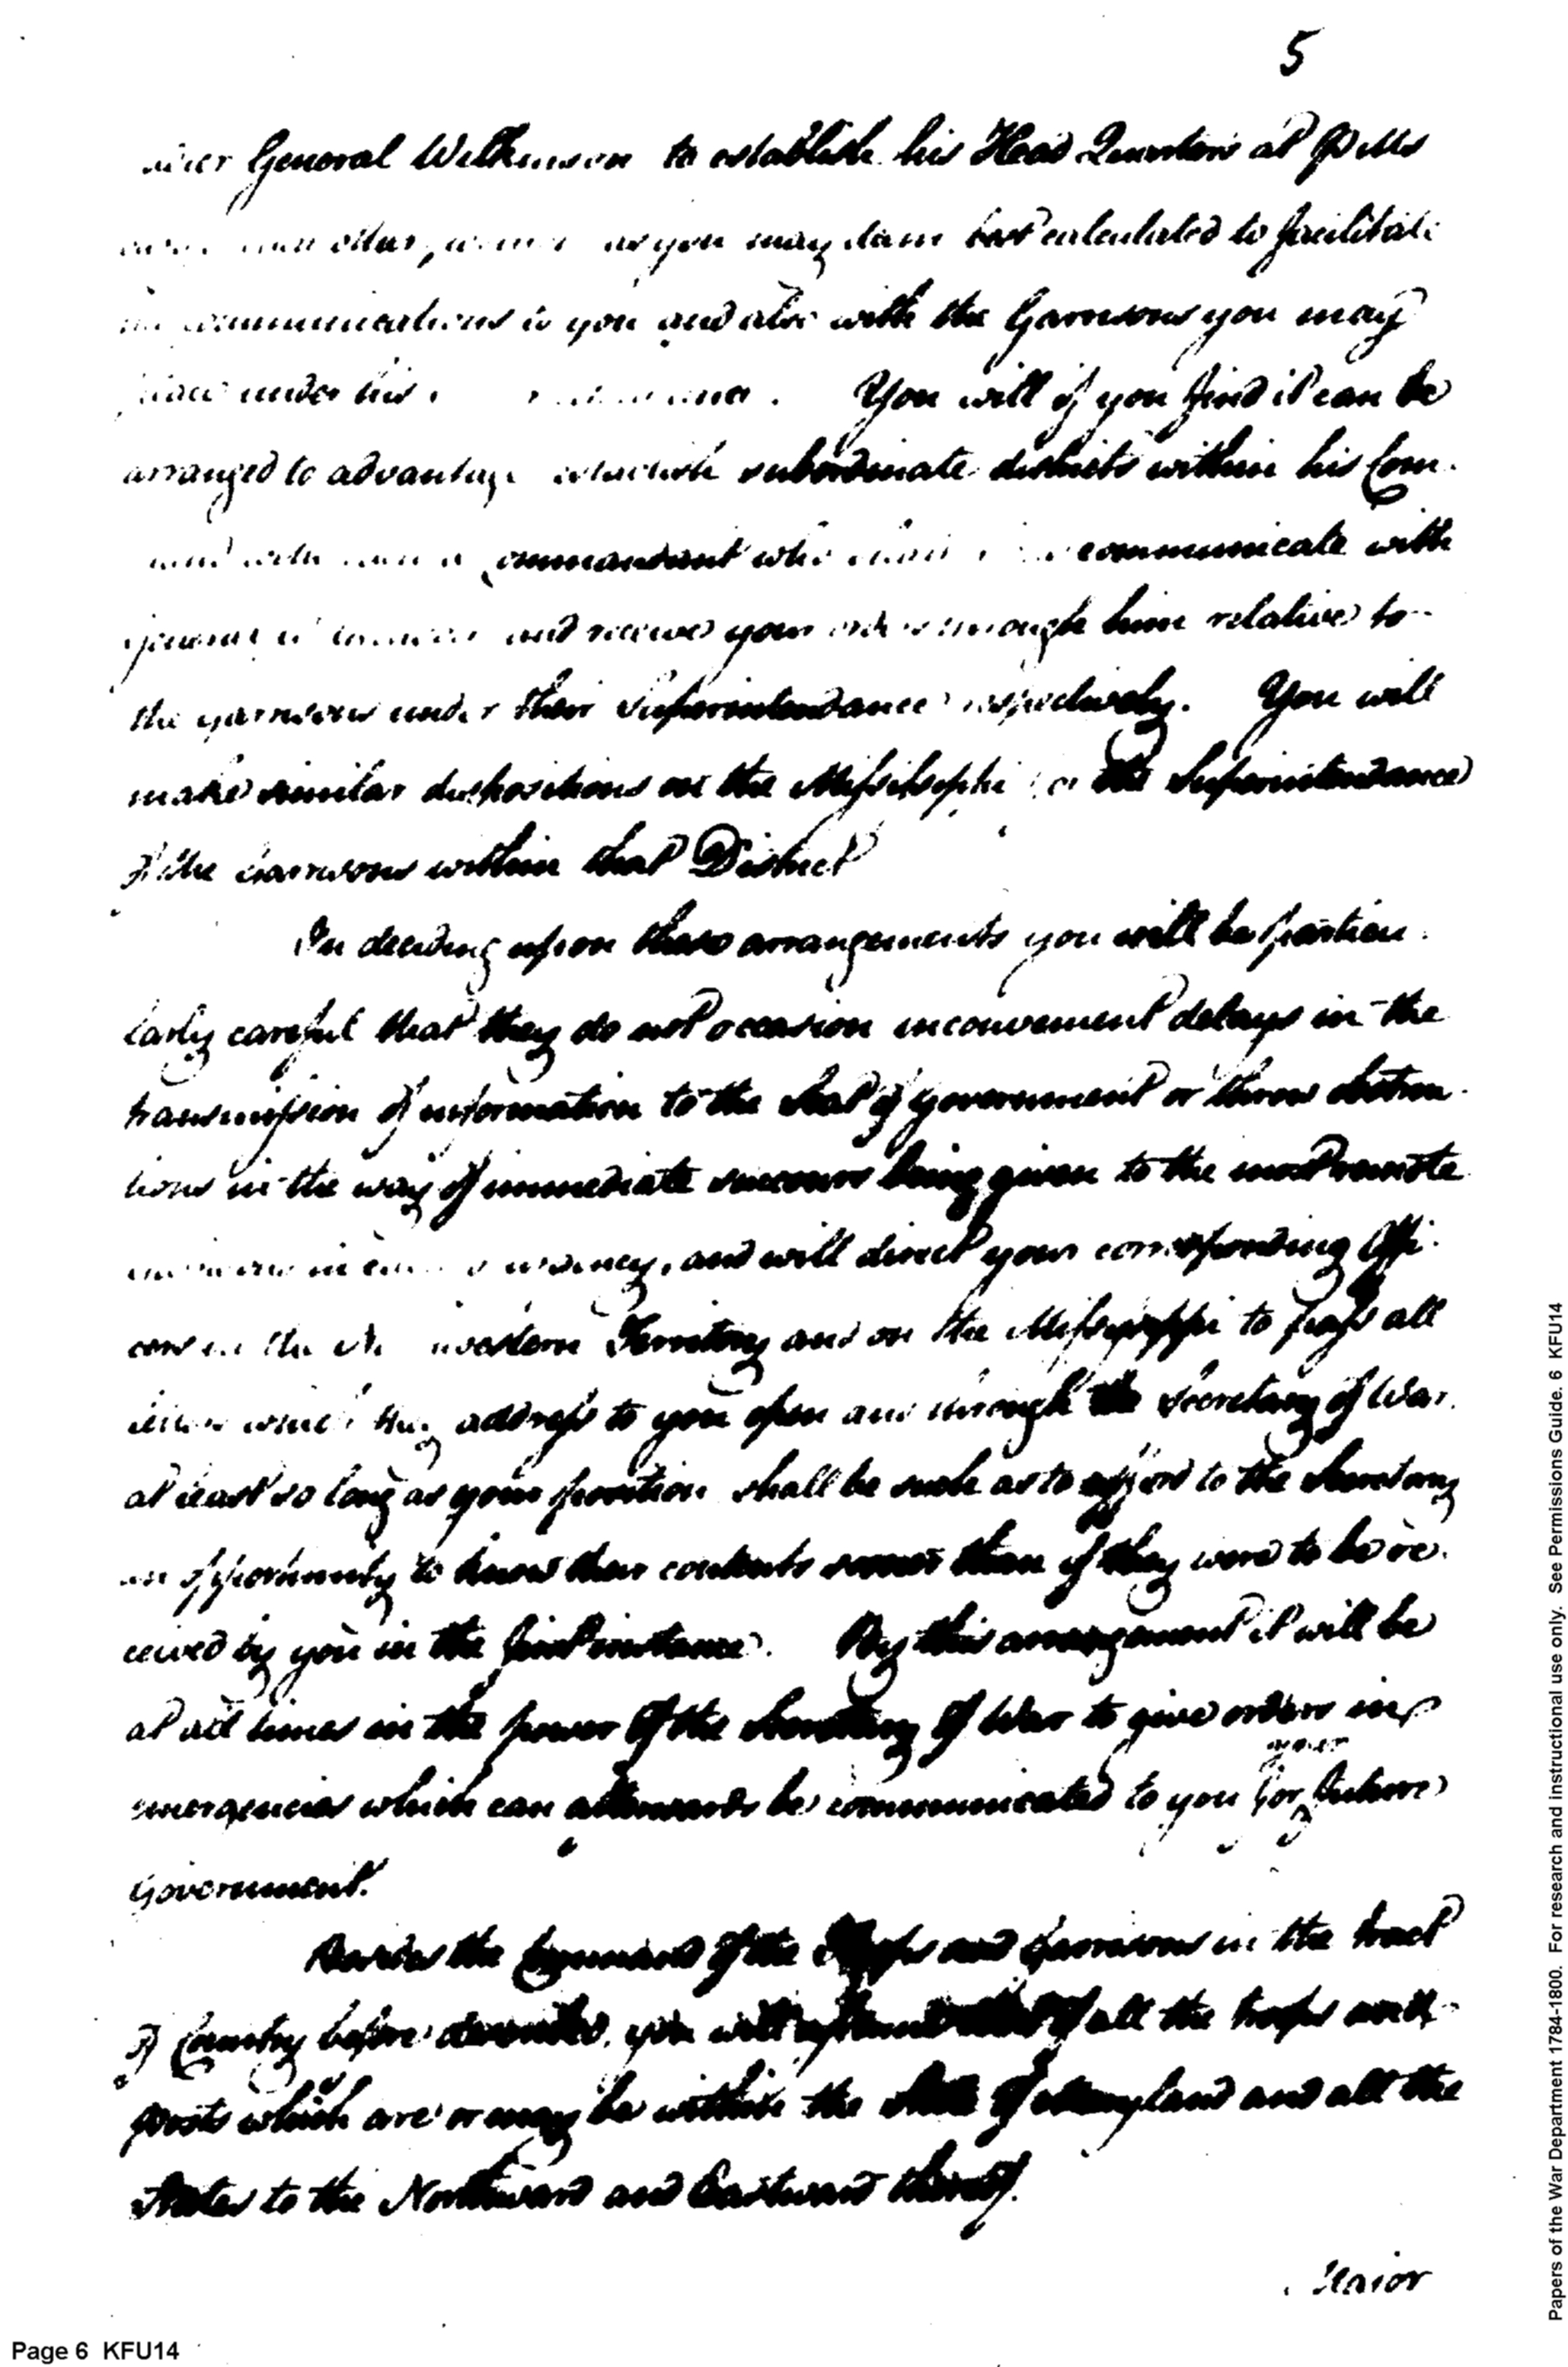 5
General Wilkinson to establish his Head Quarters at Pitts
as you may deem best calculated to facilitate
communications to you and also with the Garrisons you may
under his . You will if you find it can be
arranged to advantage establish subordinate districts within his Com-
with a Commandant who communicate with
and receive your orders through him relative to
the garrisons under their Superintendance respectively. You will
make similar dispositions on the Missisippi for the Superintendance
of the Garrisons within that District
In deciding upon these arrangements you will be particu-
larly careful that they do not occasion inconvenient delays in the
transmission of information to the Seat of government or throw obstruc-
tions in the way of immediate succour being given to the most remote
in and will direct your corresponding Offi-
cers in the western Territory and on the Missisippi to pass all
letters which they address to you open and through the Secretary of War.
at least so long as your position shall be such as to afford to the Secretary
an opportunity to know their contents sooner than if they were to be re-
ceived by you in the first instance. By this arrangement it will be
at all times in the power of the Secretary of War to give orders in
emergencies which can afterwards be communicated to you for your future
Government.
Besides the Command of the Troops and Garrisons in the tract
of Country before described, you will of all the troops and
posts which are or may be within the State of Maryland and all the
States to the Northward and Eastward thereof.
Major
Page 6 KFU14
Papers of the War Department 1784-1800. For research and instructional use only. See Permissions Guide. 6 KFU14